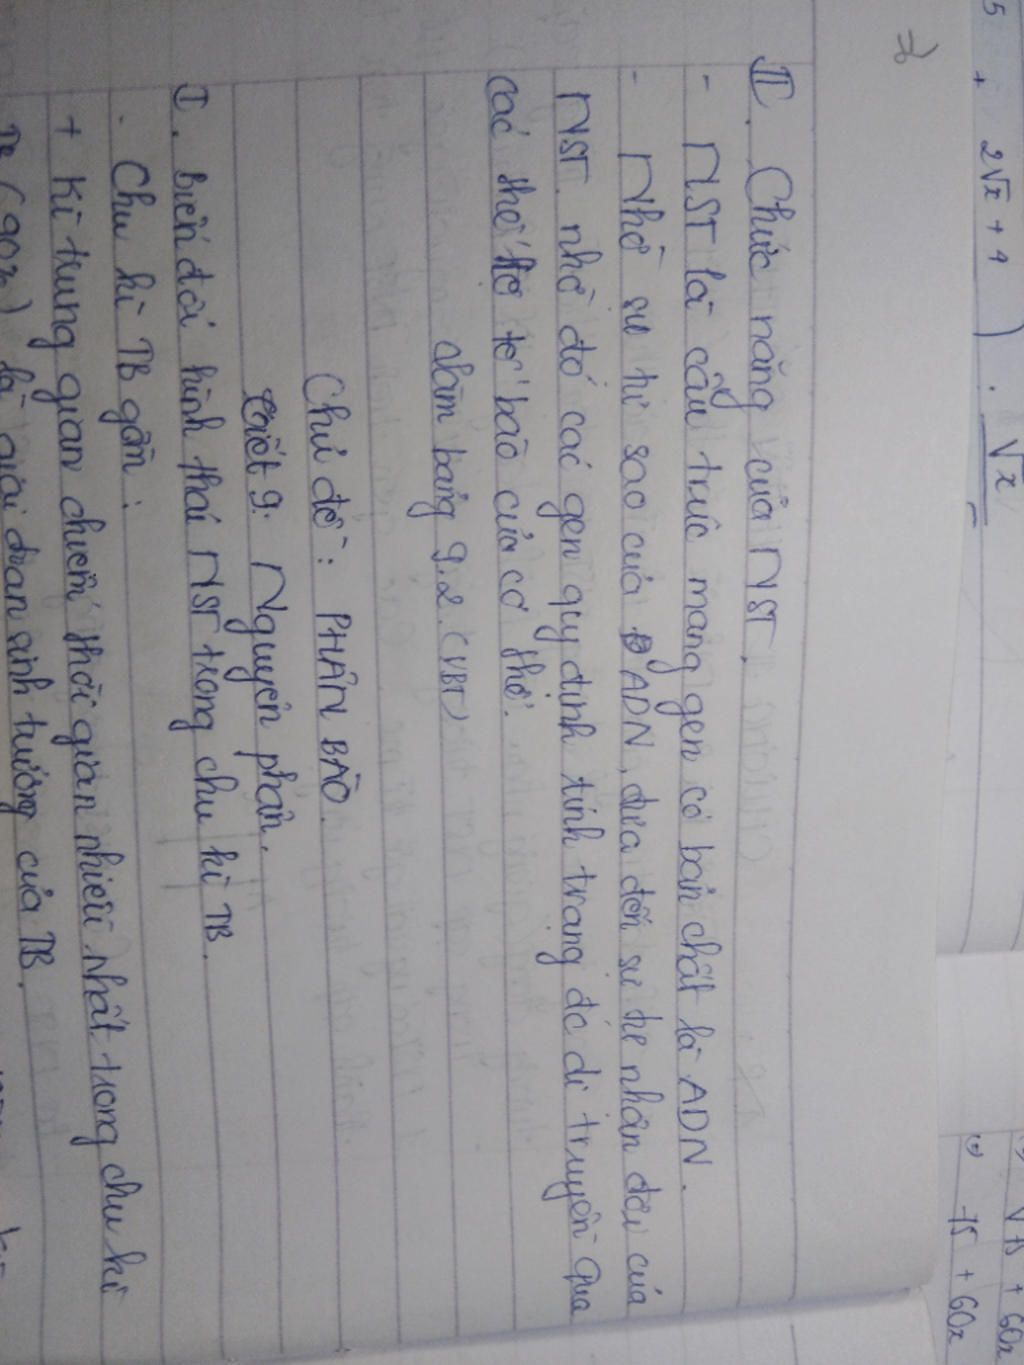 5 + 2√x + 4 ) . √x
√15 + 60x
-15 + 60x
III. Chức năng của NST.
- NST là cấu trúc mang gen có bản chất là ADN.
- Nhờ sự tự sao của ADN, đưa đến sự tự nhân đôi của
NST. nhờ đó các gen quy định tính trạng đc di truyền qua
các thế hệ tế bào của cơ thể.
Làm bảng 9.2. (VBT)
Chủ đề: PHÂN BÀO.
Tiết 9. Nguyên phân.
I. Biến đổi hình thái NST trong chu kì TB.
. Chu kì TB gồm:
+ Kì trung gian chiếm thời gian nhiều nhất trong chu kì
TB (90%) là giai đoạn sinh trưởng của TB.